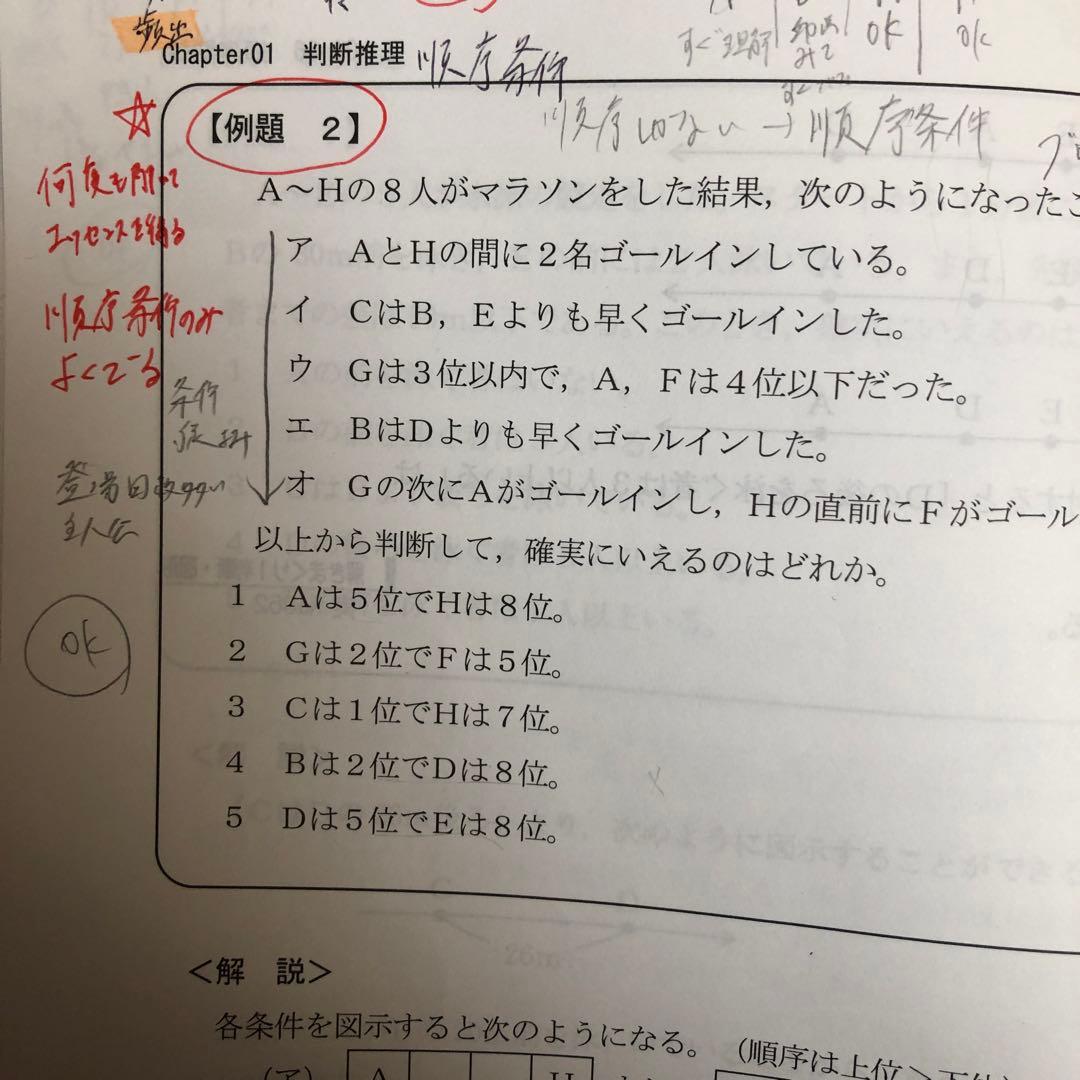 頻出
Chapter01 判断推理 順序条件
すぐ理解
みて
OK
OK
【例題 2】
順序しかない→順序条件
何度も解いて
エッセンスを得る
A～Hの8人がマラソンをした結果，次のようになったこ
ア AとHの間に2名ゴールインしている。
イ CはB，Eよりも早くゴールインした。
順序条件のみ
よくでる
ウ Gは3位以内で，A，Fは4位以下だった。
条件
エ BはDよりも早くゴールインした。
登場回数多い
主人公
オ Gの次にAがゴールインし，Hの直前にFがゴール
以上から判断して，確実にいえるのはどれか。
1 Aは5位でHは8位。
OK
2 Gは2位でFは5位。
3 Cは1位でHは7位。
4 Bは2位でDは8位。
5 Dは5位でEは8位。
＜解 説＞
各条件を図示すると次のようになる。（順序は上位＞下位）
（ア） A H